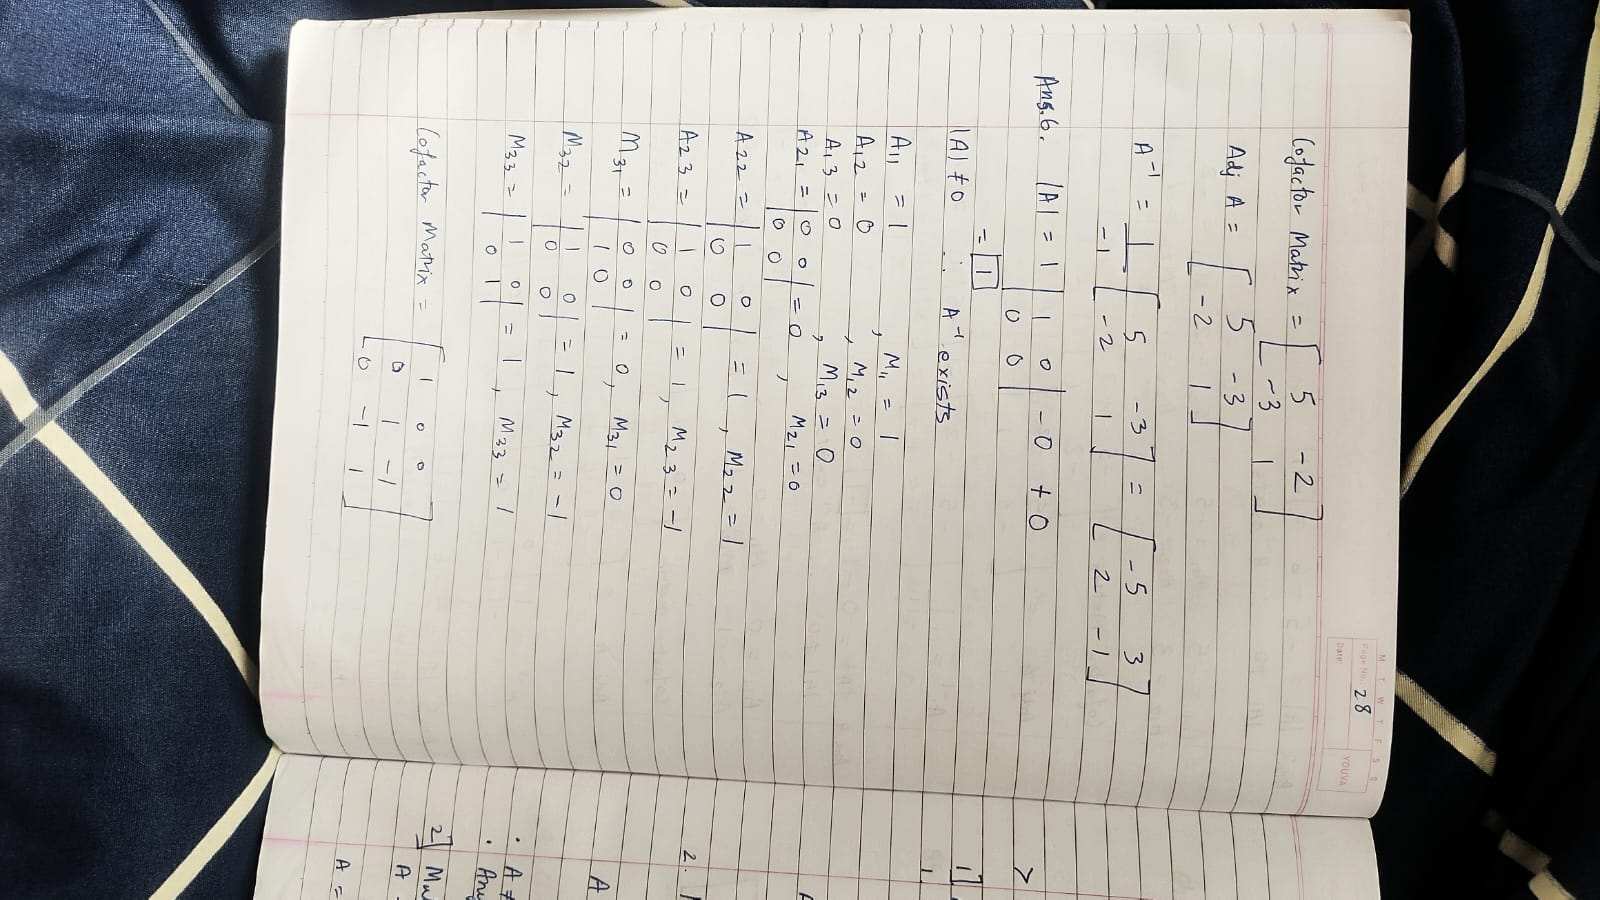 M T W T F S S
Page No.: 28
Date:
YOUVA
Cofactor Matrix = [ 5 -2
-3 1 ]
Adj A = [ 5 -3
-2 1 ]
A⁻¹ = 1/-1 [ 5 -3 ] = [ -5 3 ]
[ -2 1 ] [ 2 -1 ]
Ans.6. |A| = 1 | 1 0 | - 0 + 0
| 0 0 |
= 1
|A| ≠ 0 ∴ A⁻¹ exists
A11 = 1 , M11 = 1
A12 = 0 , M12 = 0
A13 = 0 , M13 = 0
A21 = | 0 0 | = 0 , M21 = 0
| 0 0 |
A22 = | 1 0 | = 1 , M22 = 1
| 0 0 |
A23 = | 1 0 | = 1 , M23 = -1
| 0 0 |
M31 = | 0 0 | = 0 , M31 = 0
| 1 0 |
M32 = | 1 0 | = 1 , M32 = -1
| 0 0 |
M33 = | 1 0 | = 1 , M33 = 1
| 0 1 |
Cofactor Matrix = [ 1 0 0
0 1 -1
0 -1 1 ]
>
1]
1.
2.
A
· A ≠
· Any
2]
A
A =